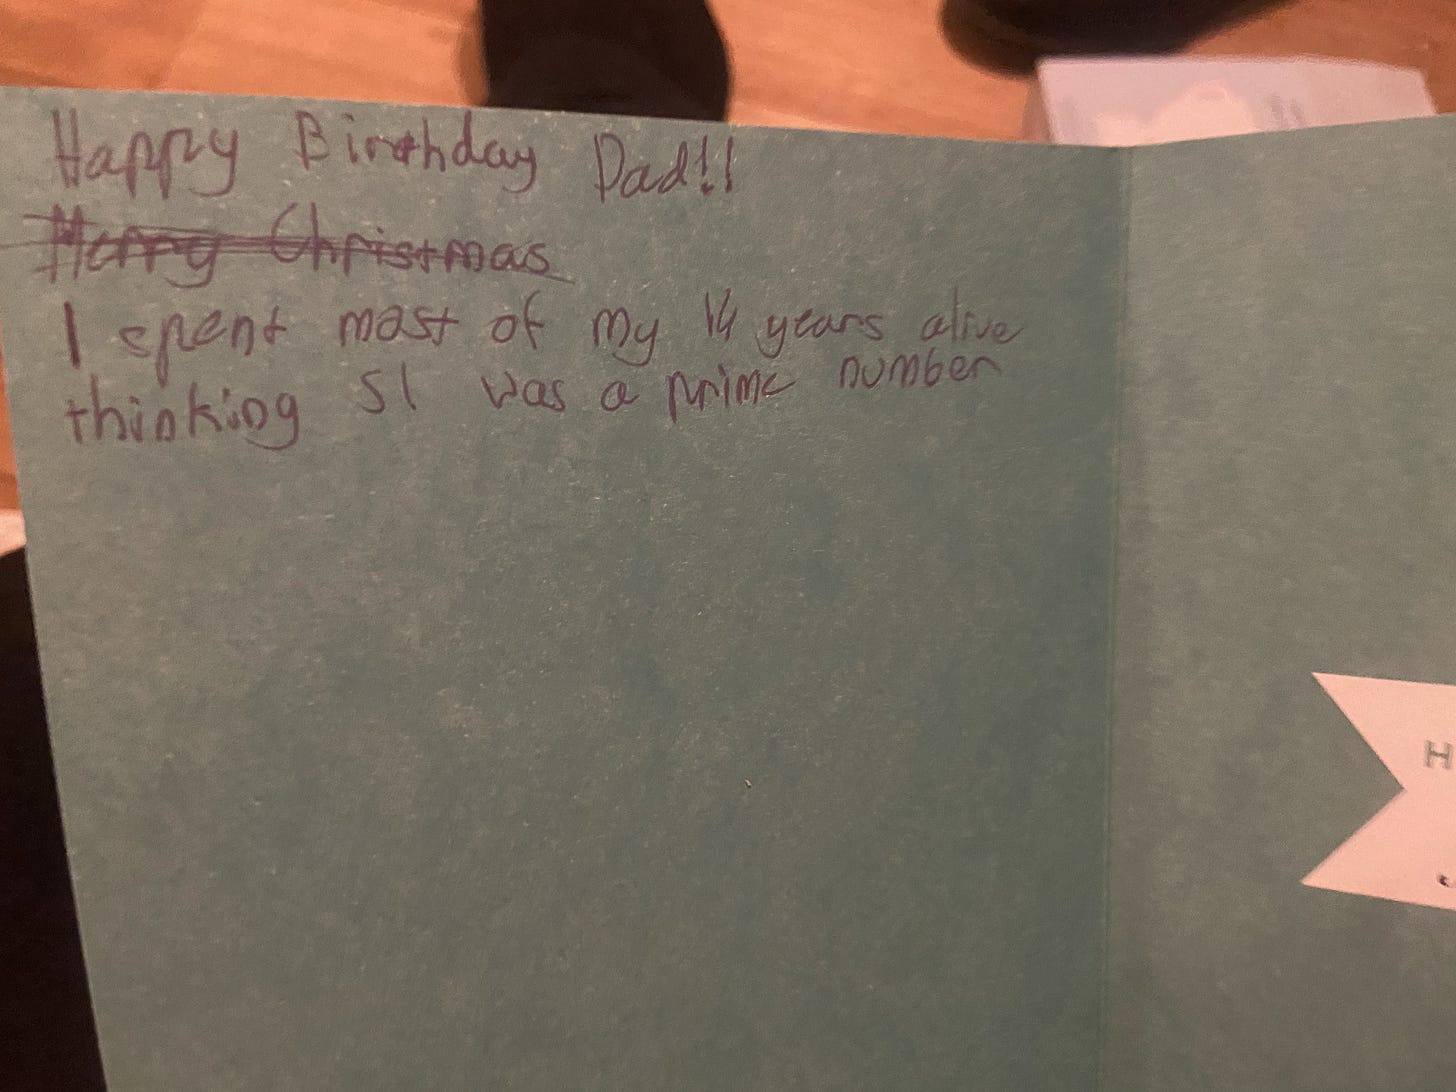 Happy Birthday Dad!!
Merry Christmas
I spent most of my 14 years alive
thinking 51 was a prime number
H